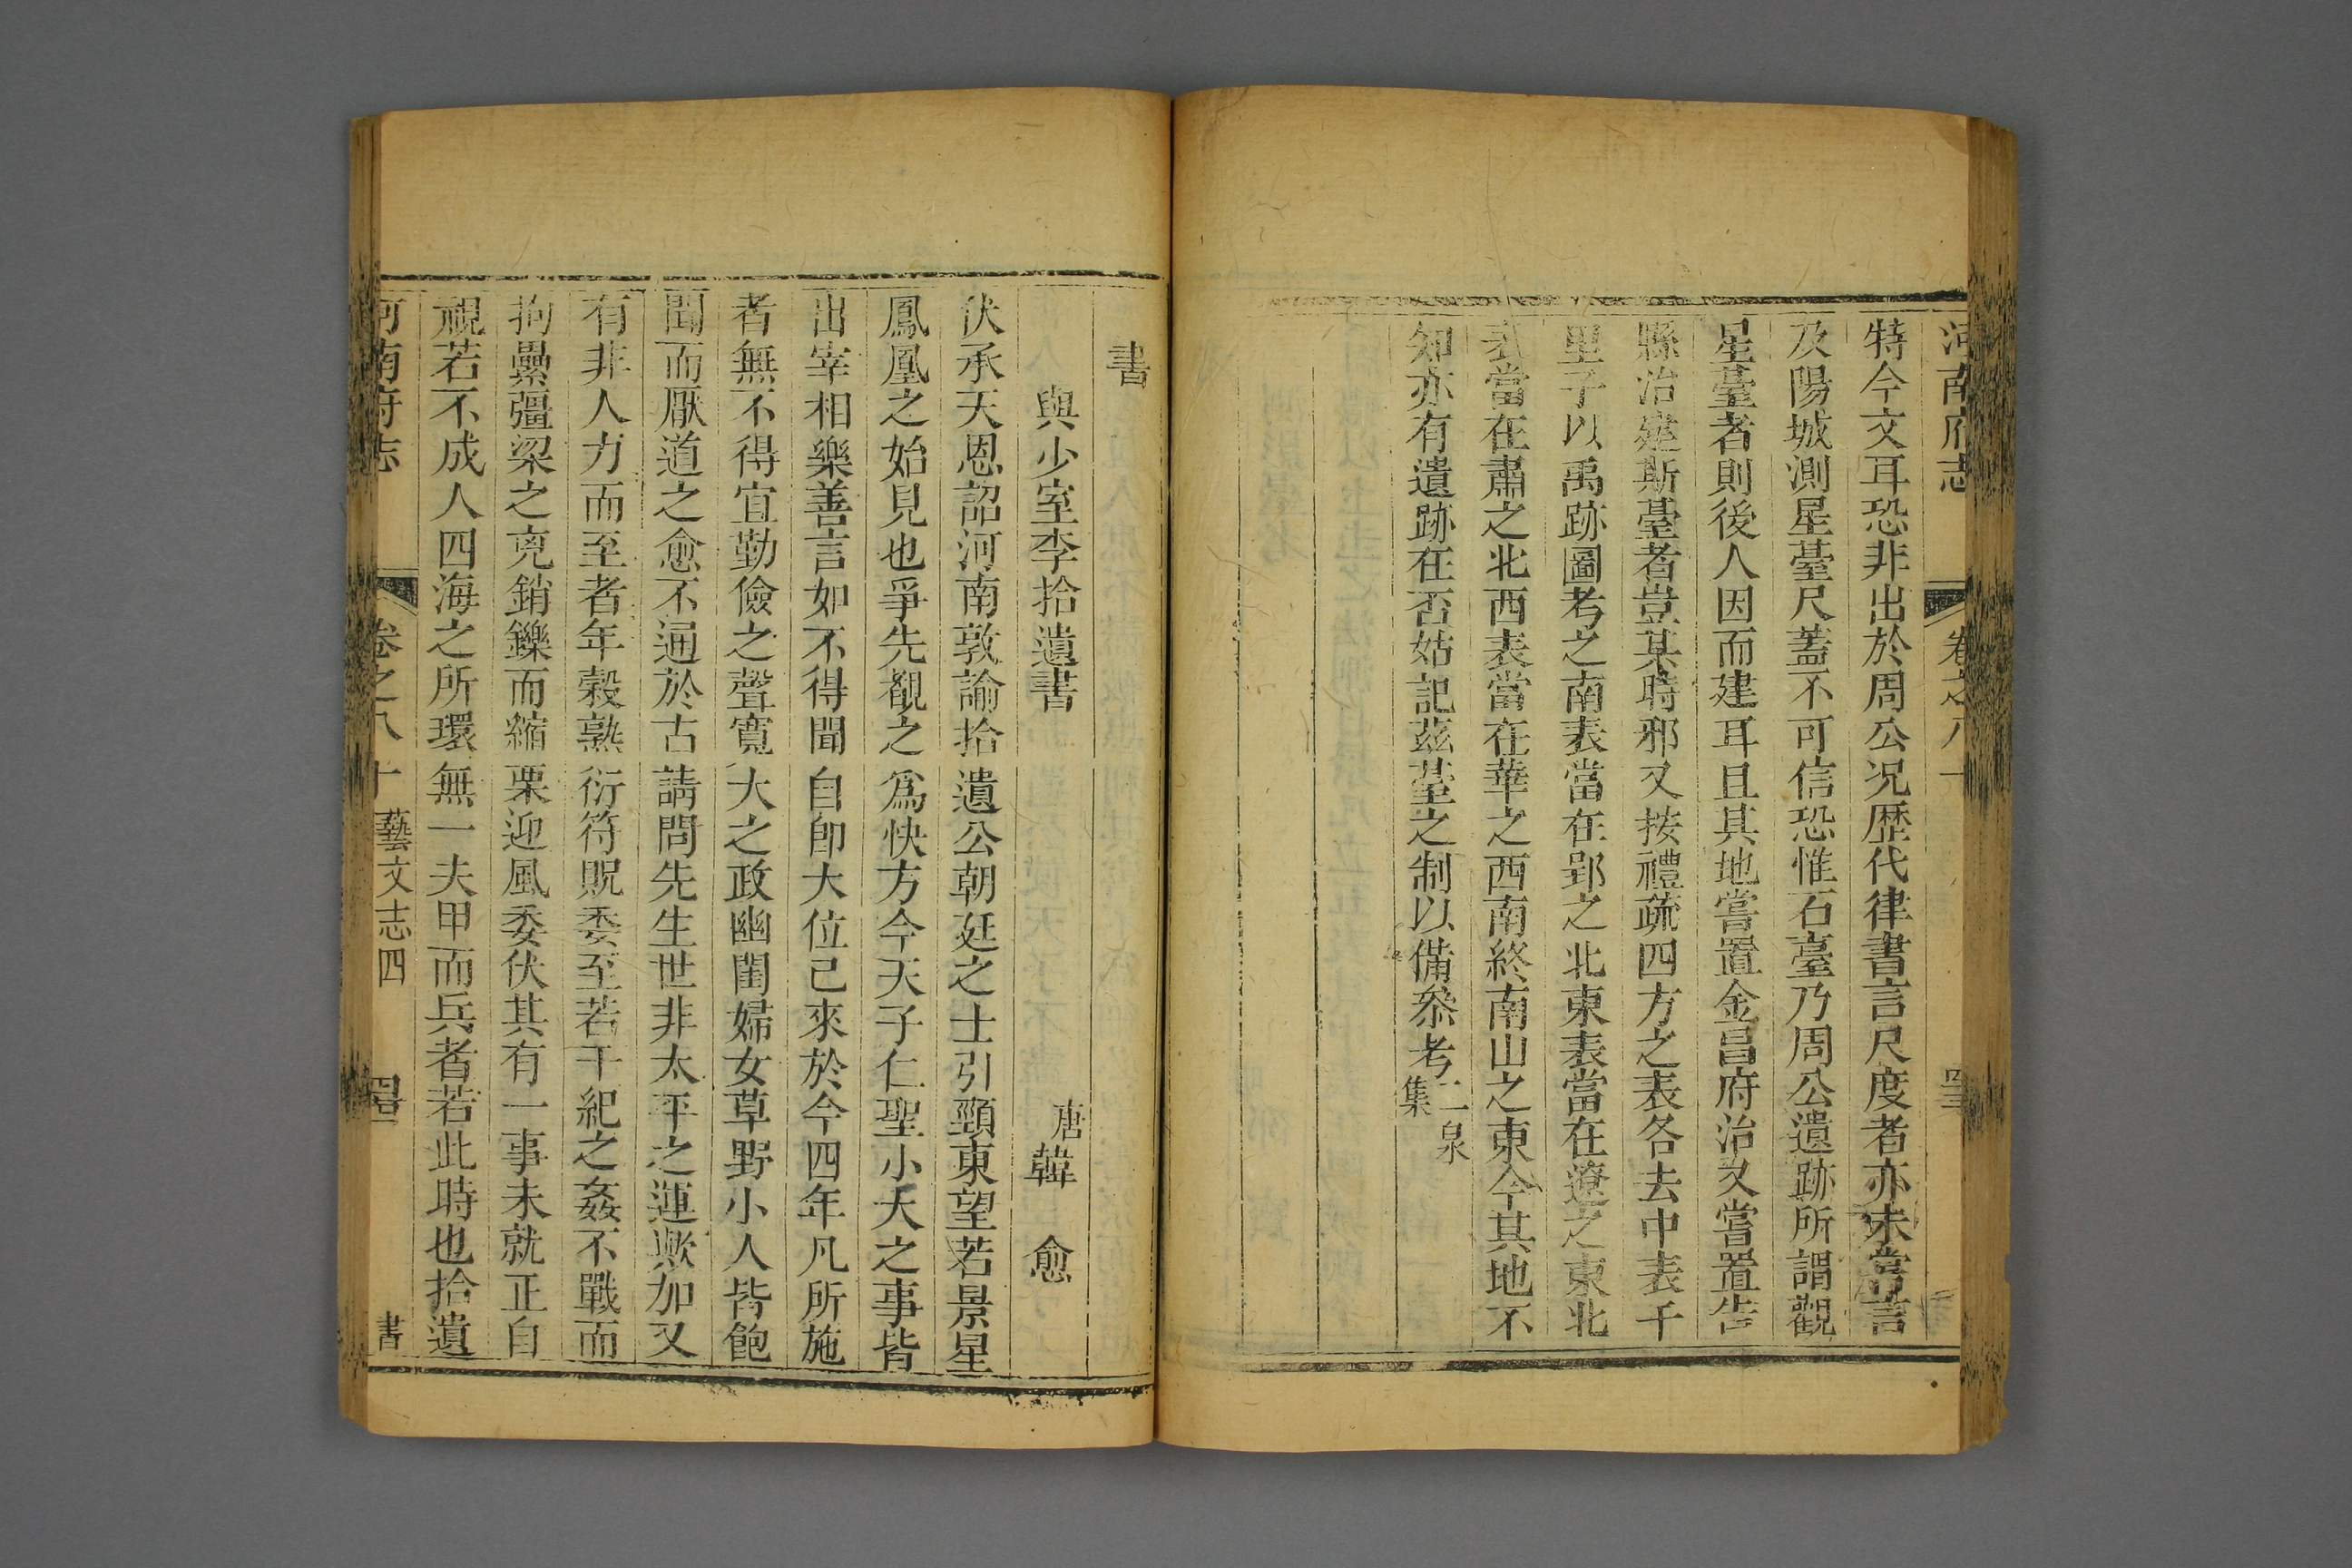 河南府志 卷之八十
特今文耳恐非出於周公况歷代律書言尺度者亦未嘗言
及陽城測星䑓尺蓋不可信恐惟石臺乃周公遺跡所謂觀
星䑓者則後人因而建耳且其地嘗置金昌府治又嘗置告
縣治建斯䑓者豈某時邪又按禮疏四方之表各去中表千
里予以禹跡圖考之南表當在郢之北東表當在遼之東北
表當在肅之北西表當在華之西南終南山之東今其地不
知亦有遺跡在否姑記茲䑓之制以備叅考二泉集
書
與少室李拾遺書 唐韓愈
伏承天恩詔河南敦諭拾遺公朝廷之士引頸東望若景星
鳳凰之始見也爭先覩之爲快方今天子仁聖小大之事皆
出宰相樂善言如不得聞自即大位已來於今四年凡所施
者無不得宜勤儉之聲寬大之政幽閨婦女草野小人皆飽
聞而厭道之愈不通於古請問先生世非太平之運歟加又
有非人力而至者年穀熟衍符貺委至若干紀之姦不戰而
拘纍彊梁之兇銷鑠而縮栗迎風委伏其有一事未就正自
視若不成人四海之所環無一夫甲而兵者若此時也拾遺
河南府志 卷之八十 藝文志四 書